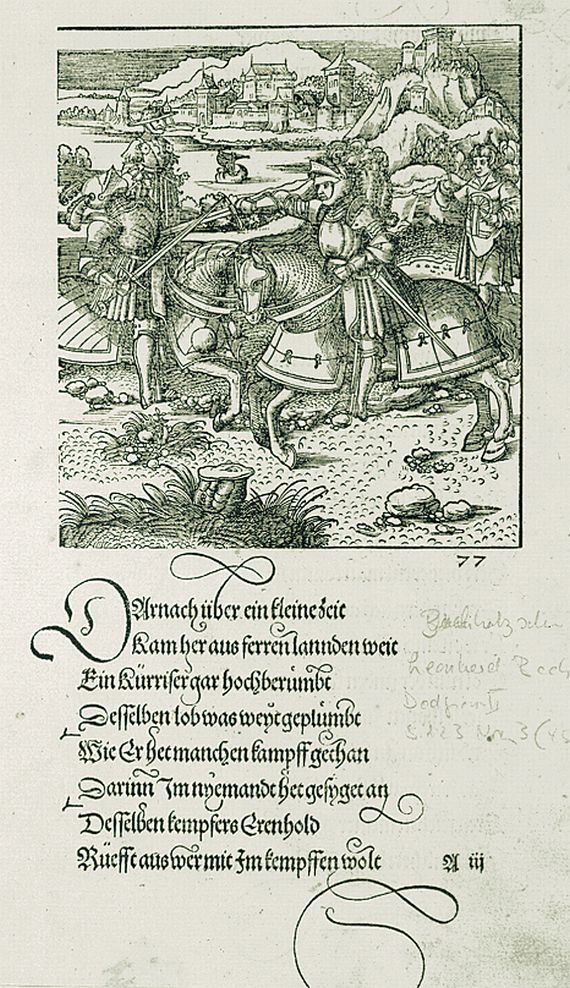 77
DArnach über ein kleine zeit
Kam her aus ferren lannden weit
Ein Kürriser gar hochberümbt
Desselben lob was weyt geplümbt
Wie Er het manchen kampff gethan
Darinn Im nyemandt het gesyget an
Desselben kempfers Erenhold
Rüefft aus wer mit Im kempffen wolt
A iij
Leonhard
Dodgson II
S. 123 Nr. 3